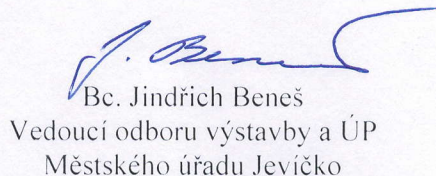 J. Beneš
Bc. Jindřich Beneš
Vedoucí odboru výstavby a ÚP
Městského úřadu Jevíčko